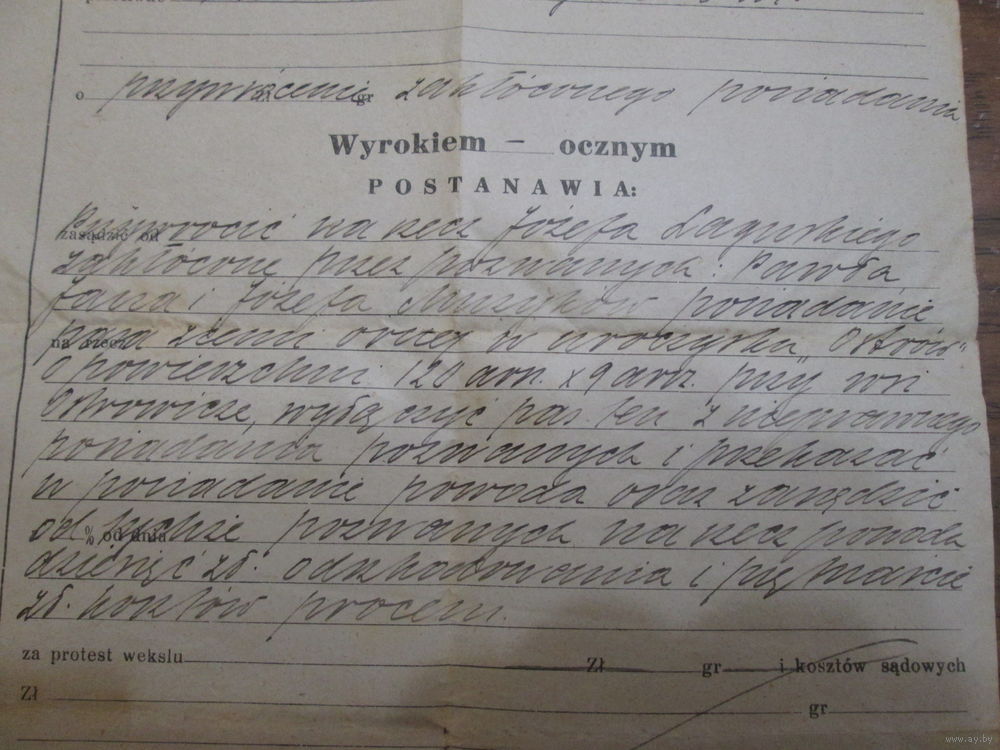 o przywrócenie zł gr zakłóconego posiadania
Wyrokiem — ocznym
POSTANAWIA:
zasądzić od Przywrócić na rzecz Józefa Łagunskiego
zakłócone przez pozwanych: Pawła
Jana i Józefa posiadanie
na rzecz pasa ziemi ornej w uroczysku „Ostrów"
o powierzchni 120 arn. x 9 arn. przy wsi
Ostrowicze, wyłączyć pas ten z nieprawnego
posiadania pozwanych i przekazać
w posiadanie powoda oraz zasądzić
% od dnia od tychże pozwanych na rzecz powoda
dziesięć zł. odszkodowania i piętnaście
zł. kosztów procesu.
za protest wekslu Zł gr i kosztów sądowych
Zł gr
www.ay.by